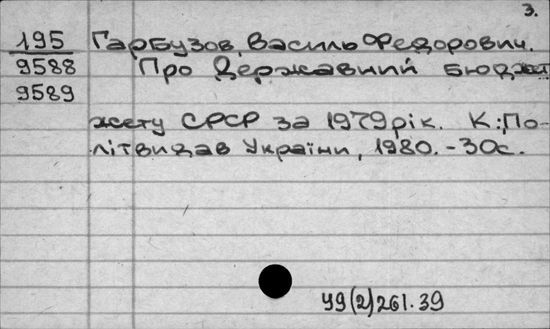 3.
195 Гарбузов, Василь Федорович.
9588 Про Державний бюджет
9589
жету СРСР за 1979 рік. К.; По-
літвидав України, 1980. - 30с.
У9(2)261.39